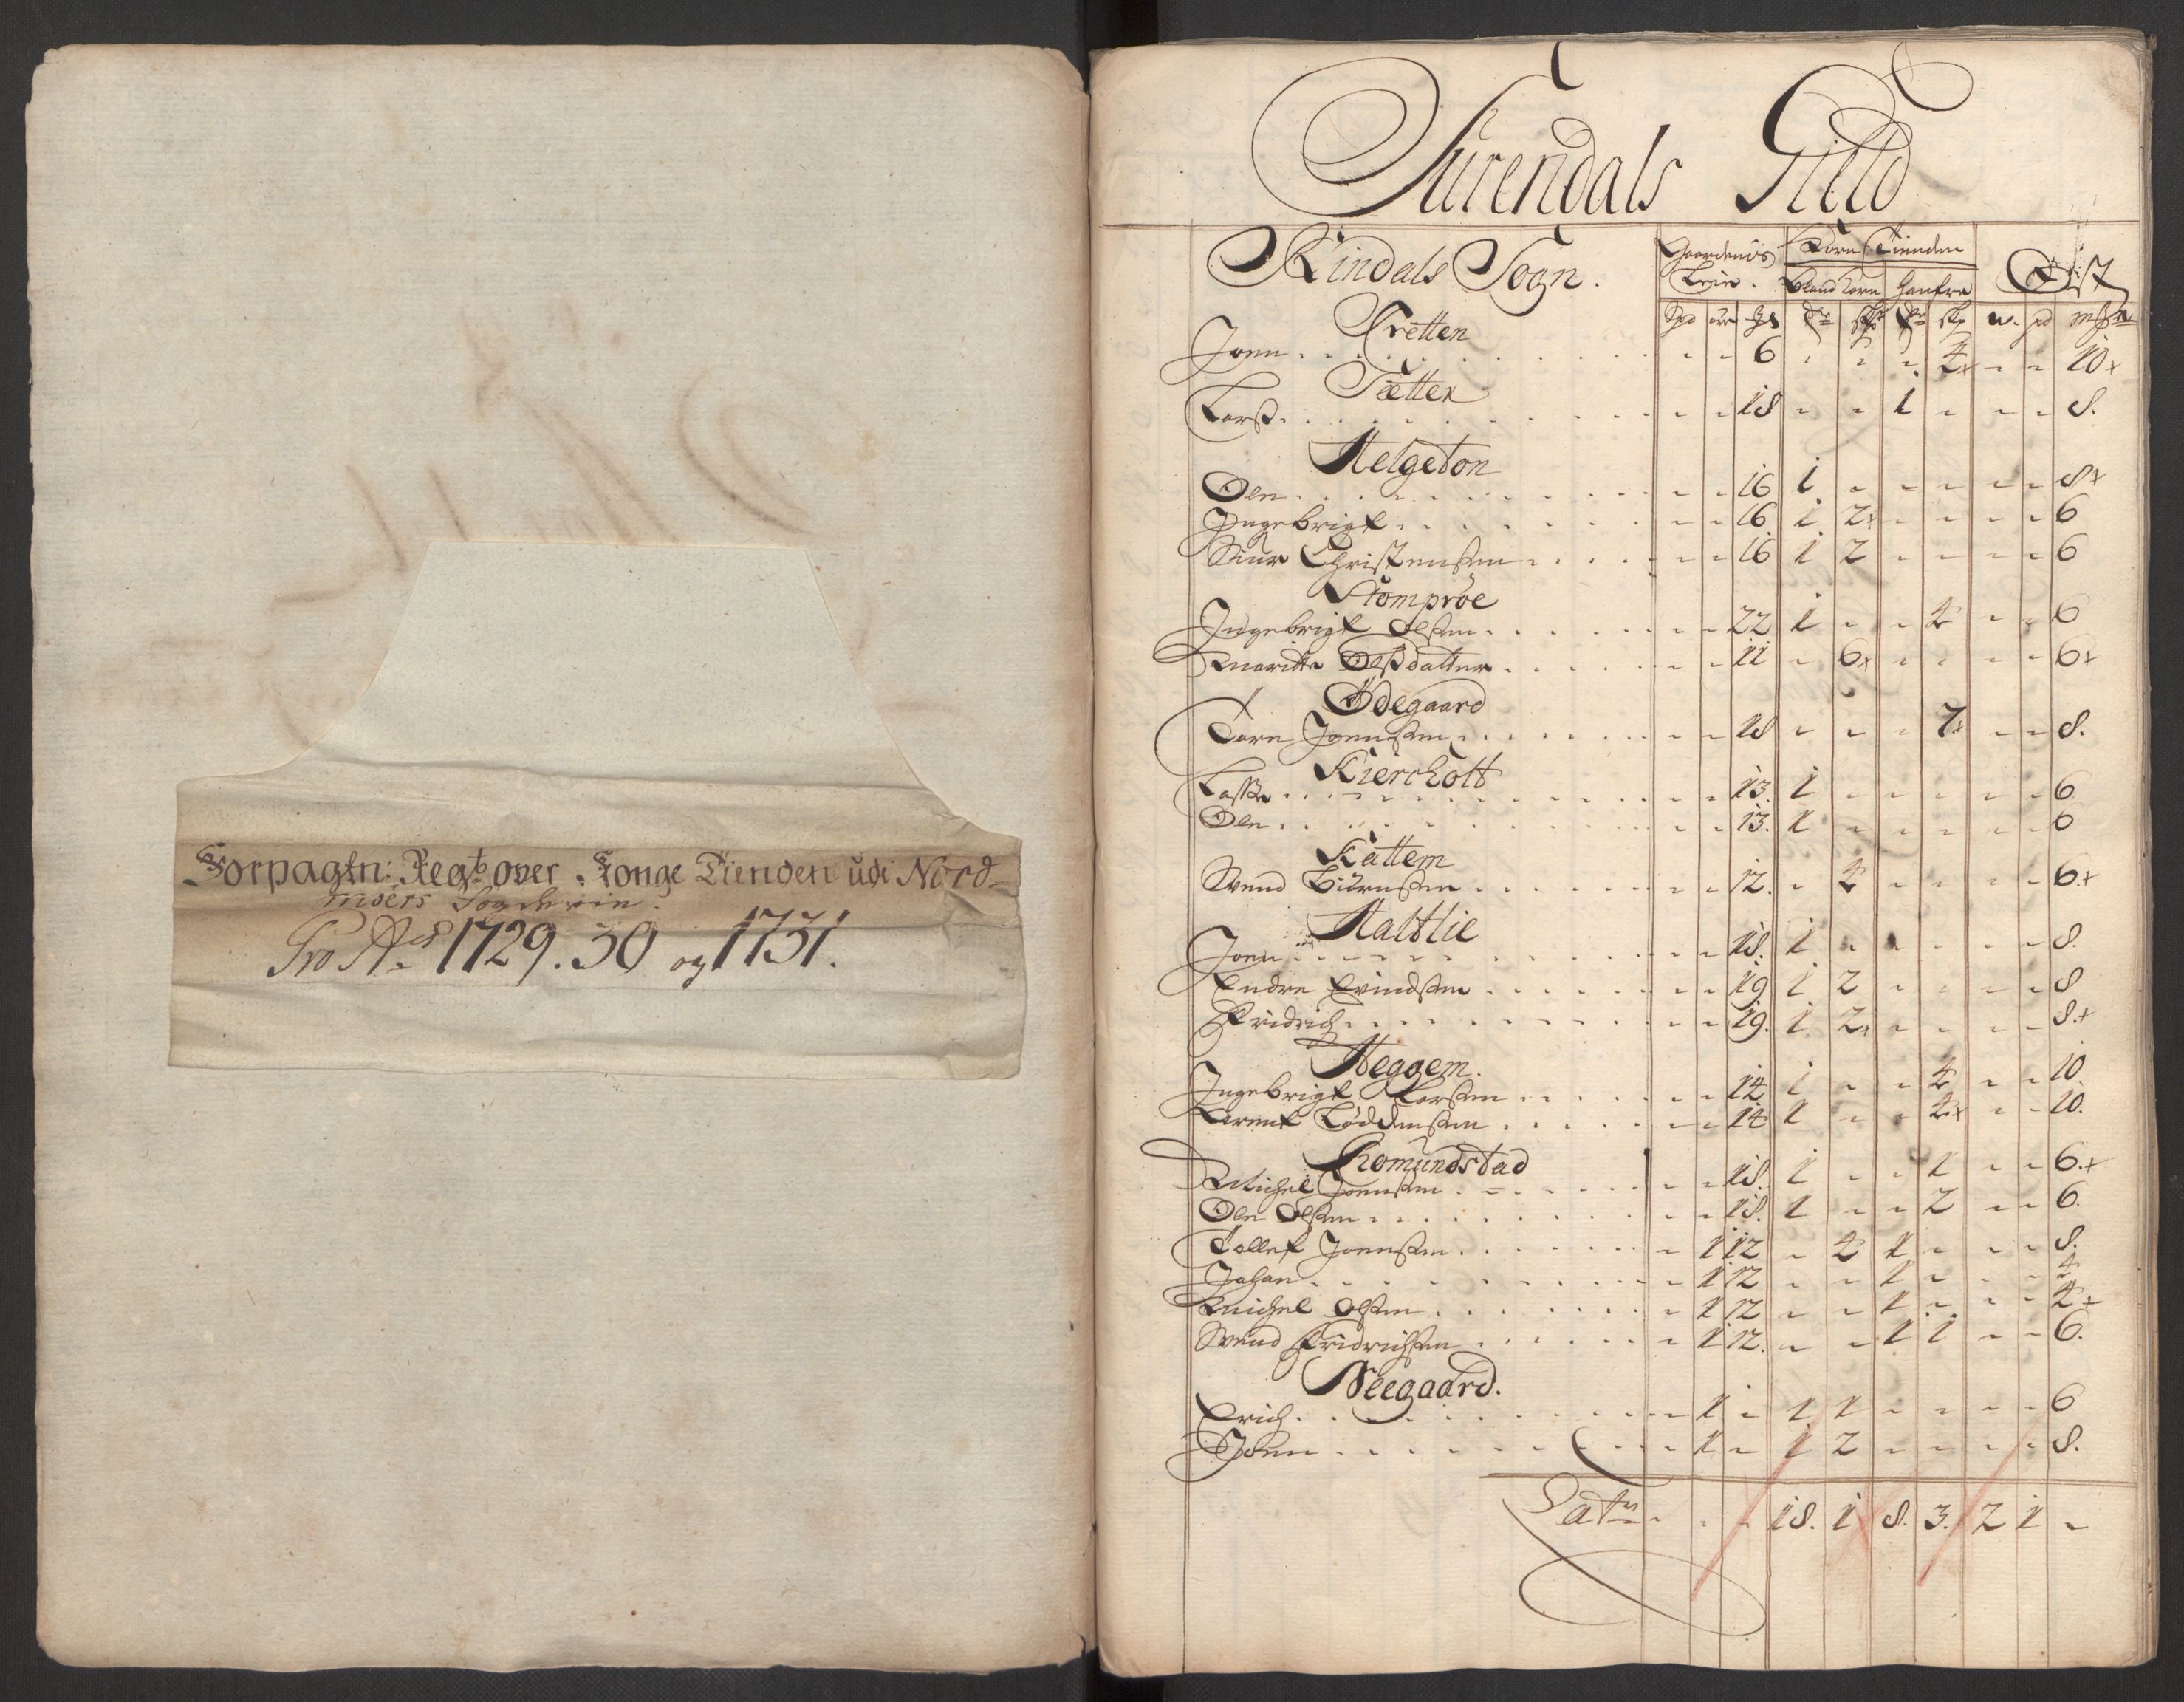 Forpagtn: Regt over Konge Tienden udi Nord-
möers Fogderie.
Pro Ao 1729. 30 og 1731.
Surendals Gield
Rindals Sogn.
Gaardenis Leie. Korn Tienden Ost
Bland Korn Hanfre
Spd
Tretten
Joen 6 4+ 10+
Tætter
Larß 18 1 8.
Helgeton
Ole 16 1 8+
Ingebrigt 16 1 2+ 6
Siur Christensen 16 1 2 6
Stompröe
Ingebrigt Olsen 22 1 4 6
Maritte Olsdatter 11 6+ 6+
Ödegaard
Tore Joensen 18 7+ 8.
Kierckolt
Lasse 13. 1 6
Ole 13. 1 6
Kattem
Svend Biörnsen 12. 4 6+
Haltlie
Joen 18. 1 8.
Endre Evindsen 19 1 2 8
Fridrich 19. 1 2+ 8.+
Heggem.
Ingebrigt Larsen 14 1 4 10
Arent Löddensen 14 1 4+ 10.
Romundstad
Michel Joensen 18. 1 1 6.+
Ole Olsen 18. 1 2 6.
Tollef Joensen 1 12 4 1 8.
Johan 1 12 1 4
Michel Olsen 1 12 1 4+
Svend Fridrichsen 1 12. 1 1 6.
Neegaard.
Erich 1 1 1 6
Joen 1 1 2 8.
Lats 18. 1 8. 3. 2 1